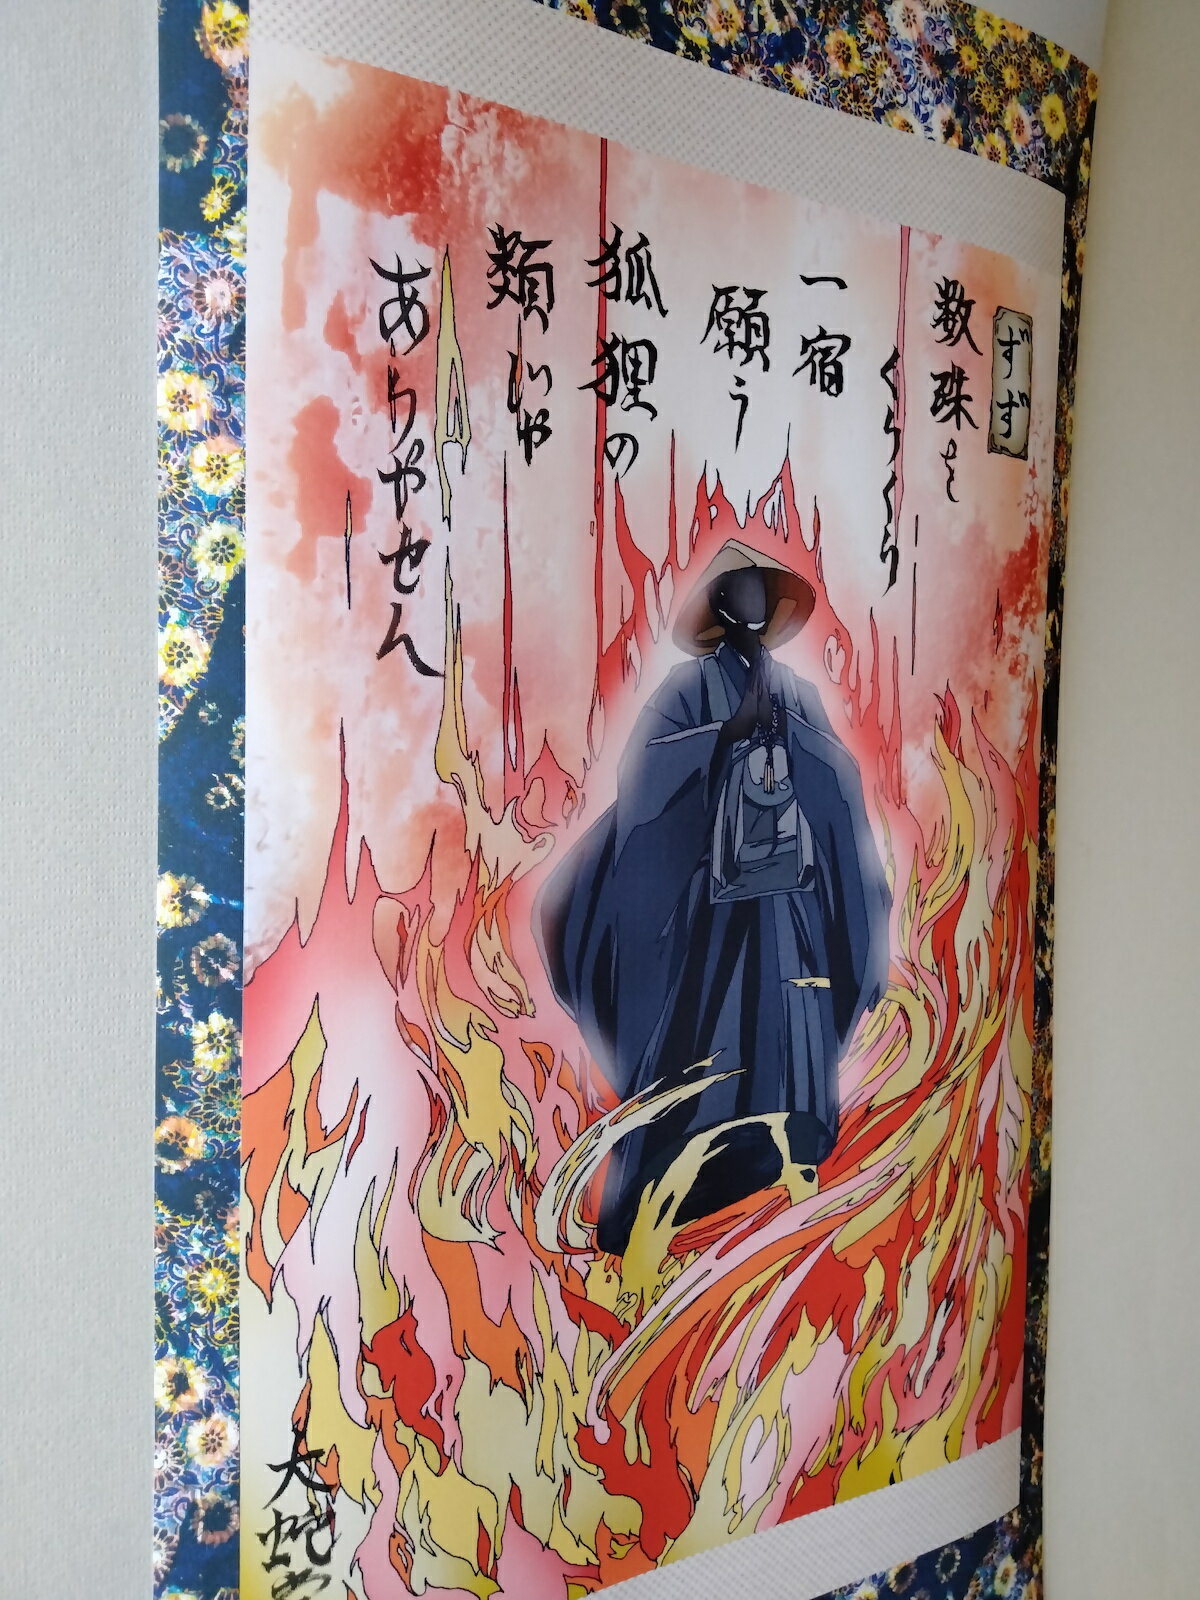 ずず
数珠を
くらくら
一宿
願う
狐狸の
類いや
ありやせん
大蛇